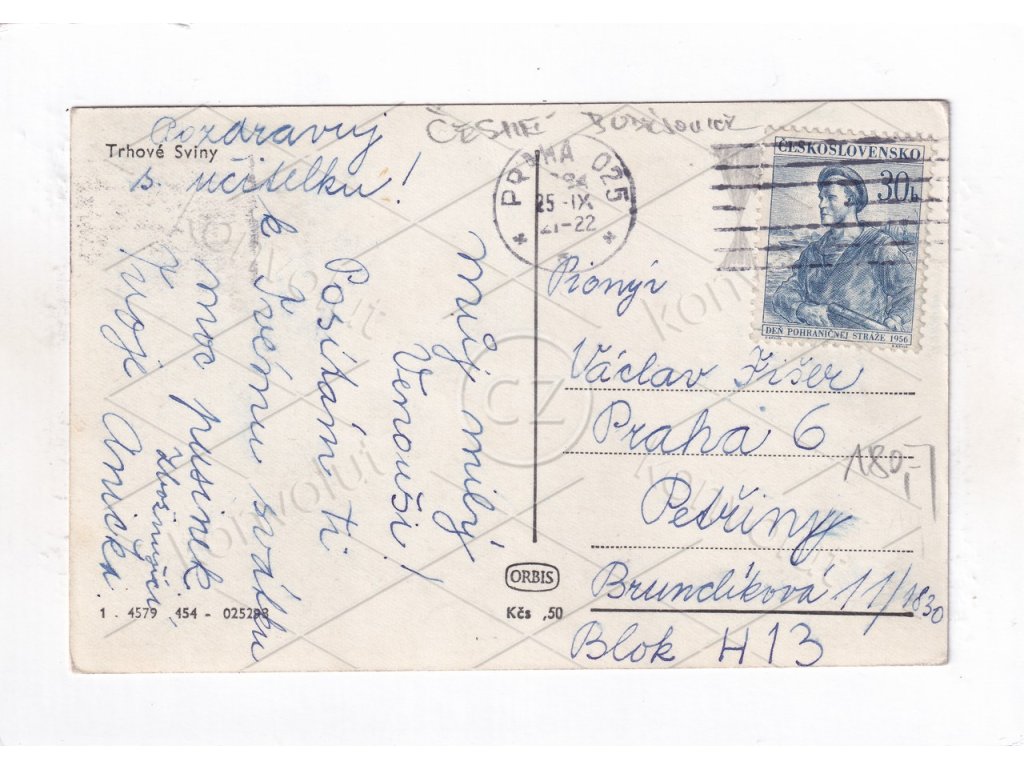 Pozdravuj
s. učitelku!
Trhové Sviny
ČESKÉ BUDĚJOVICE
PRAHA 025
25 -IX
21-22
ČESKOSLOVENSKO
30h
DEŇ POHRANIČNEJ STRÁŽE 1956
Můj milý
Venouši!
Posílám ti
k Tvému svátku
moc pusinek
Tvoje Anička
Pionýr
Václav Fišer
Praha 6
Petřiny
Brundlíková 11/1830
Blok H 13
180,-
ORBIS
Kčs ,50
1 . 4579 454 - 025293
konvolut
CZ
konvolut
konvolut
konvolut